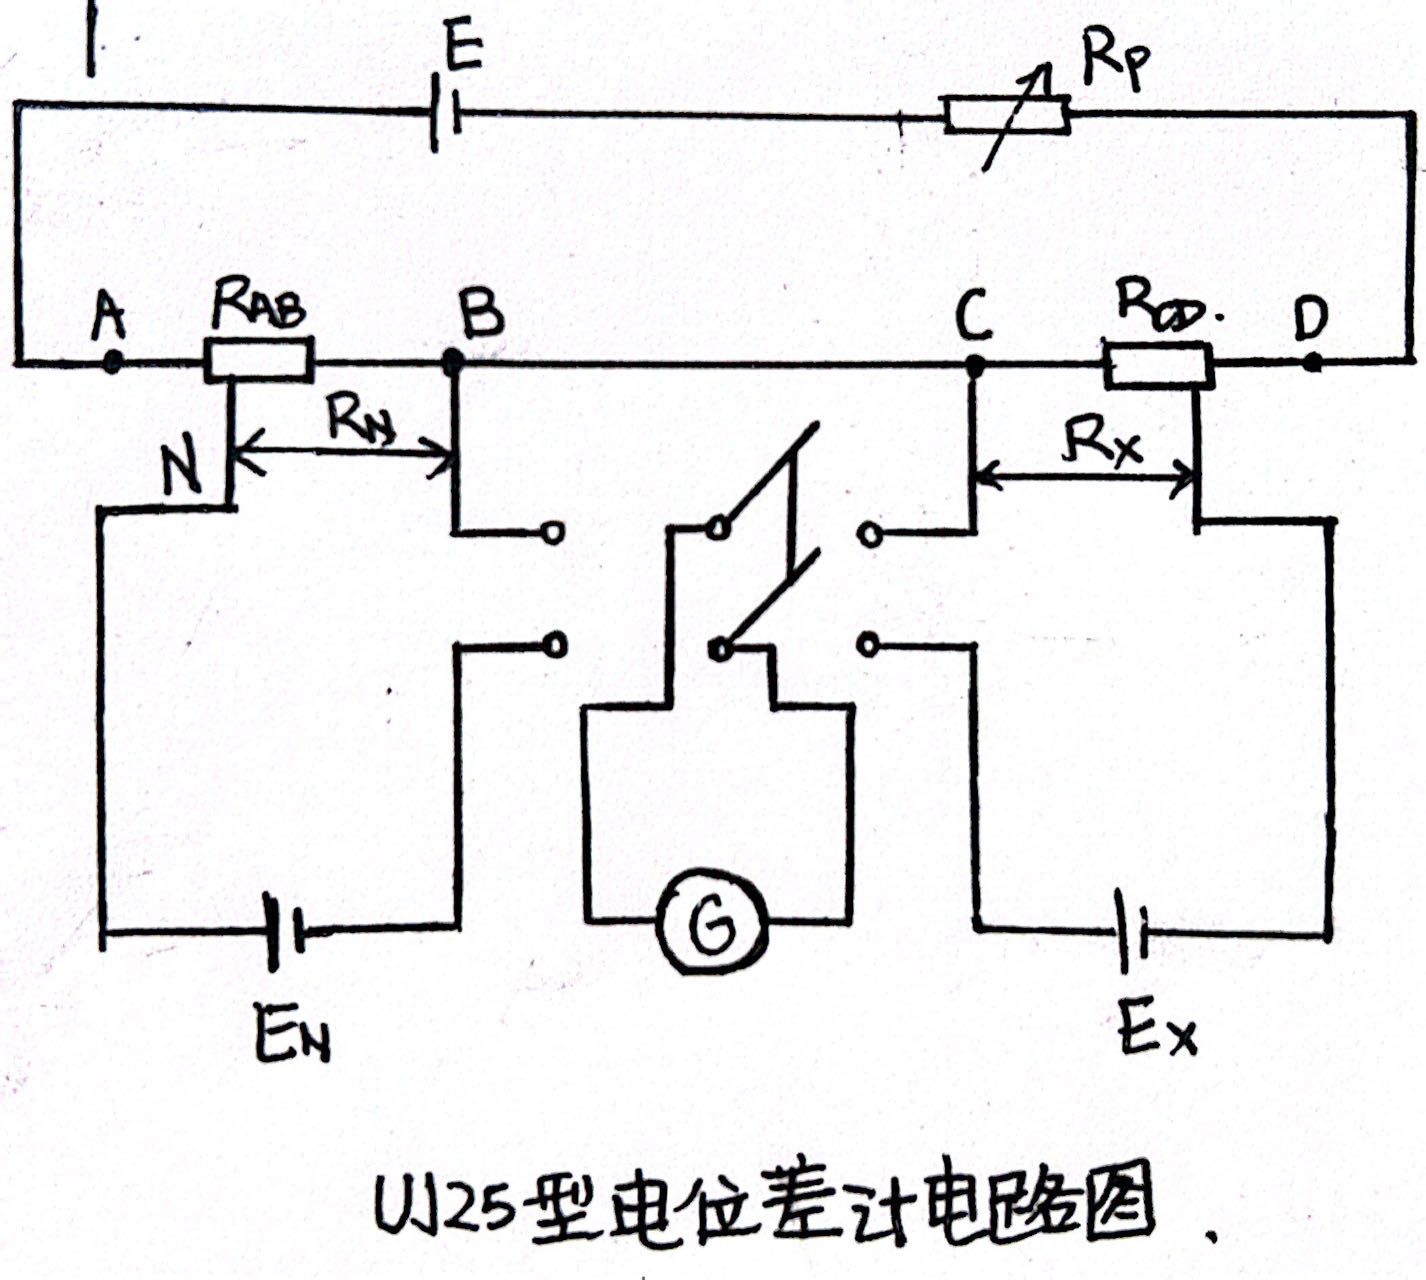 E
RP
A
RAB
B
C
RCD.
D
N
RN
RX
G
EN
EX
UJ25型电位差计电路图.